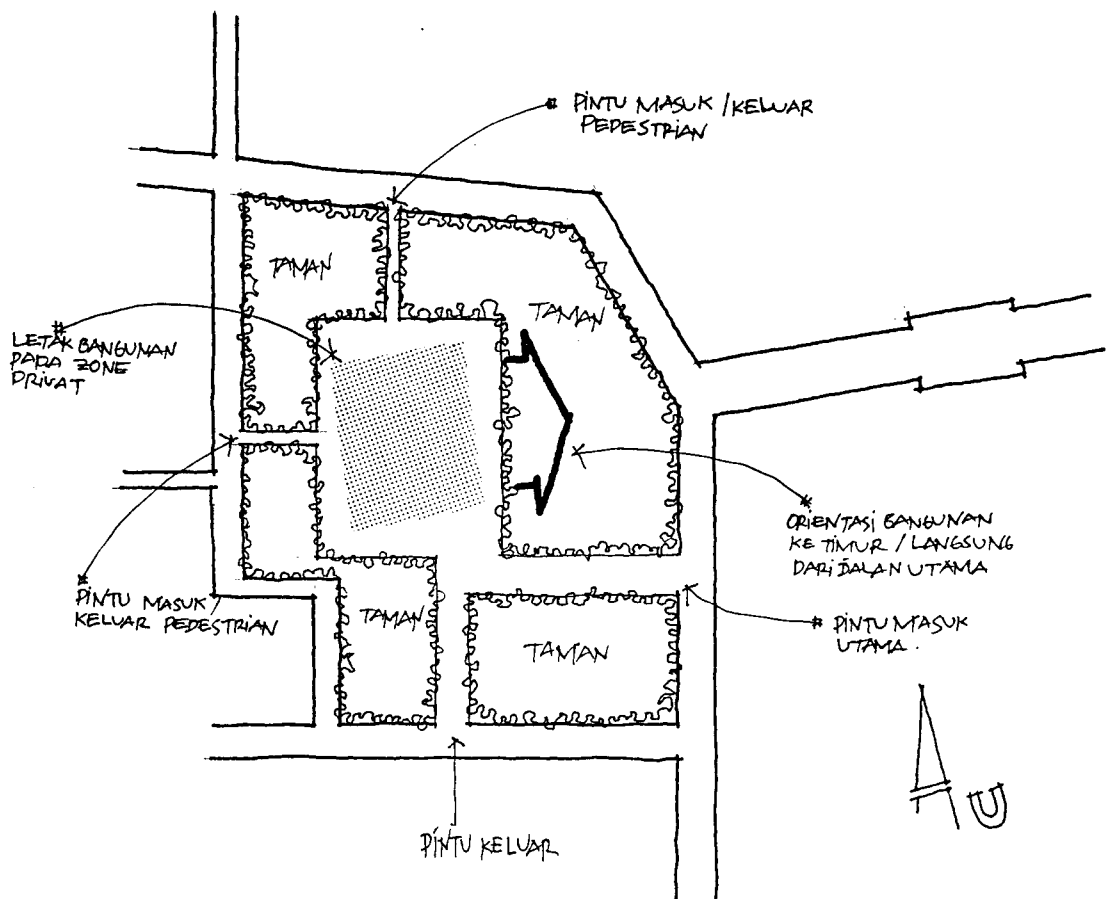 * PINTU MASUK / KELUAR
PEDESTRIAN
TAMAN
TAMAN
* LETAK BANGUNAN
PADA ZONE
PRIVAT
* ORIENTASI BANGUNAN
KE TIMUR / LANGSUNG
DARI JALAN UTAMA
* PINTU MASUK
KELUAR PEDESTRIAN
TAMAN
TAMAN
* PINTU MASUK
UTAMA.
PINTU KELUAR
U